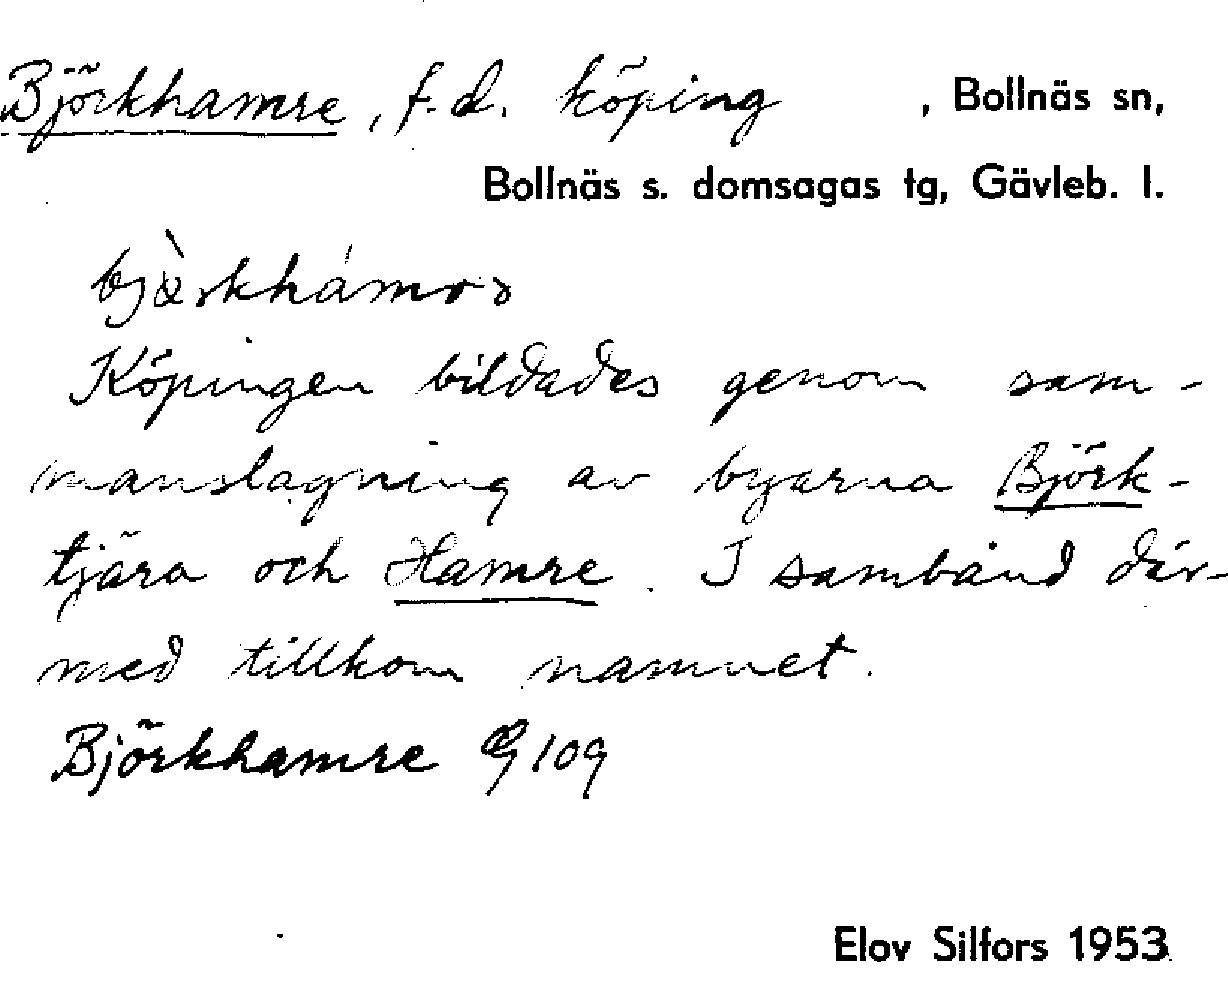 Björkhamre, f.d. köping , Bollnäs sn,
Bollnäs s. domsagas tg, Gävleb. l.
Köpingen bildades genom sam-
manslagning av byarna Björk-
tjära och Hamre. I samband där-
med tillkom namnet.
Björkhamre 109
Elov Silfors 1953